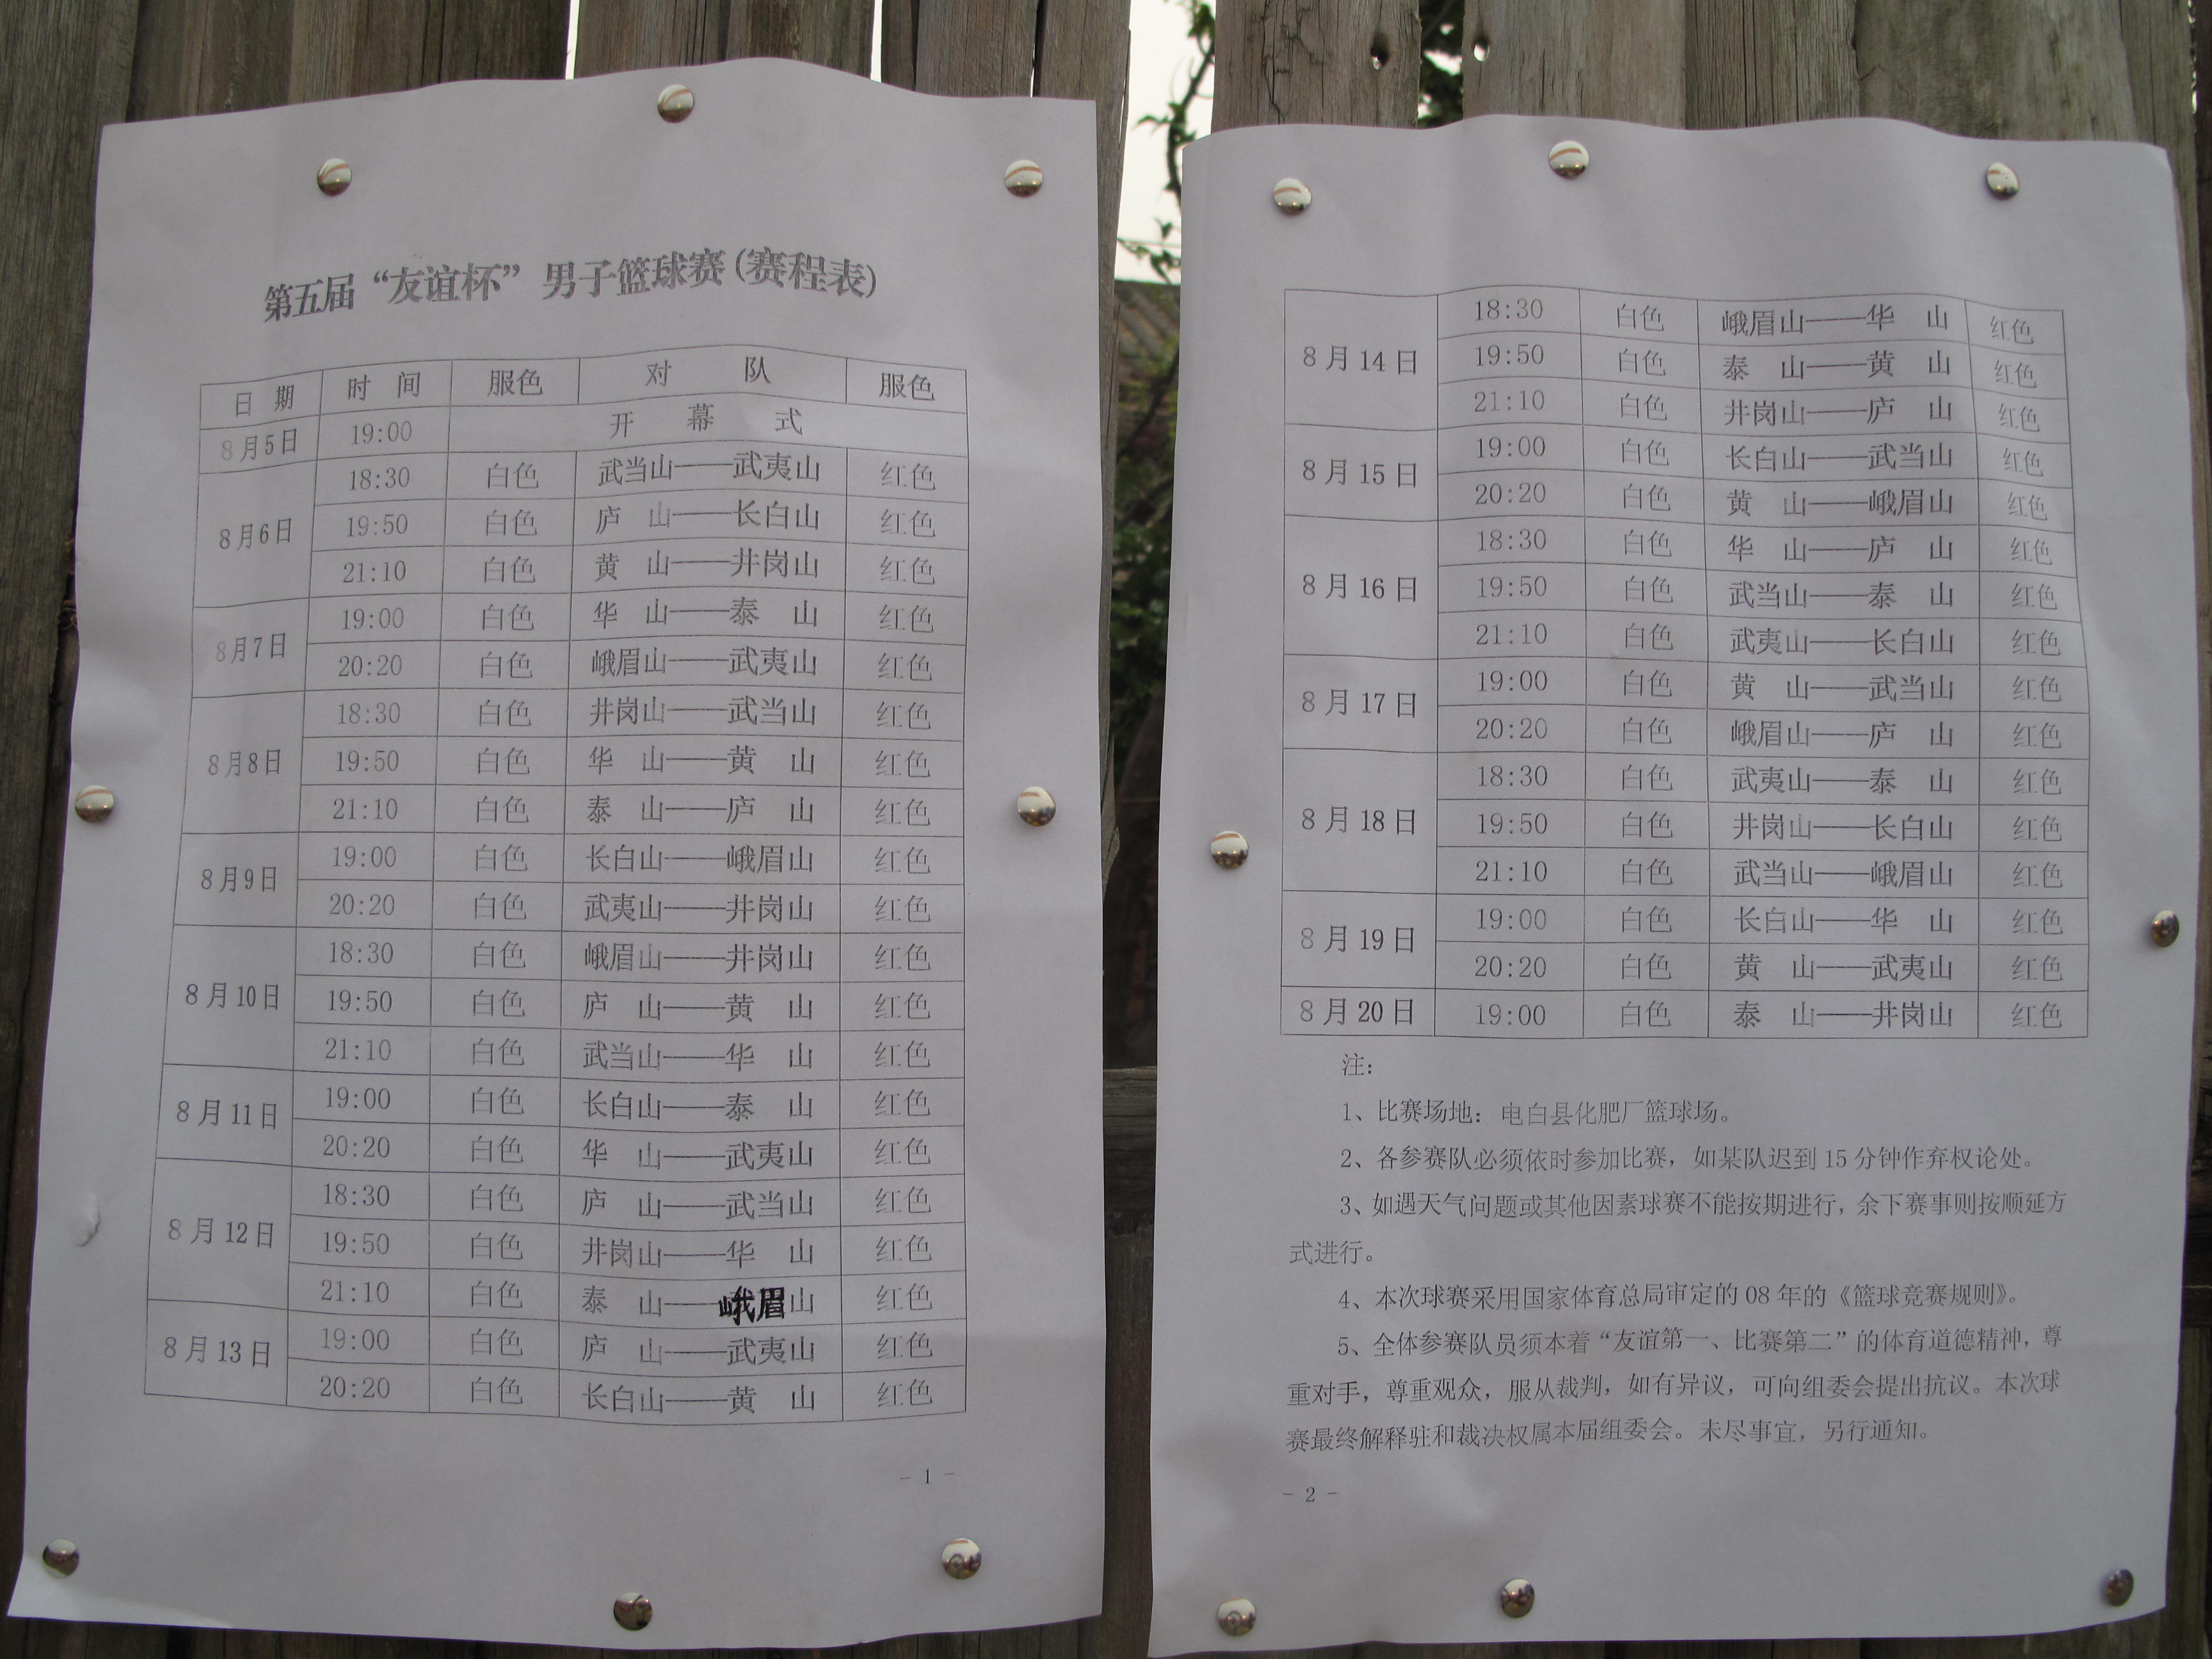 第五届“友谊杯”男子篮球赛(赛程表)
日 期 时 间 服色 对 队 服色
8月5日 19:00 开 幕 式
8月6日 18:30 白色 武当山——武夷山 红色
19:50 白色 庐 山——长白山 红色
21:10 白色 黄 山——井岗山 红色
8月7日 19:00 白色 华 山——泰 山 红色
20:20 白色 峨眉山——武夷山 红色
8月8日 18:30 白色 井岗山——武当山 红色
19:50 白色 华 山——黄 山 红色
21:10 白色 泰 山——庐 山 红色
8月9日 19:00 白色 长白山——峨眉山 红色
20:20 白色 武夷山——井岗山 红色
8月10日 18:30 白色 峨眉山——井岗山 红色
19:50 白色 庐 山——黄 山 红色
21:10 白色 武当山——华 山 红色
8月11日 19:00 白色 长白山——泰 山 红色
20:20 白色 华 山——武夷山 红色
8月12日 18:30 白色 庐 山——武当山 红色
19:50 白色 井岗山——华 山 红色
21:10 白色 泰 山——峨眉山 红色
8月13日 19:00 白色 庐 山——武夷山 红色
20:20 白色 长白山——黄 山 红色
- 1 -
8月14日 18:30 白色 峨眉山——华 山 红色
19:50 白色 泰 山——黄 山 红色
21:10 白色 井岗山——庐 山 红色
8月15日 19:00 白色 长白山——武当山 红色
20:20 白色 黄 山——峨眉山 红色
8月16日 18:30 白色 华 山——庐 山 红色
19:50 白色 武当山——泰 山 红色
21:10 白色 武夷山——长白山 红色
8月17日 19:00 白色 黄 山——武当山 红色
20:20 白色 峨眉山——庐 山 红色
8月18日 18:30 白色 武夷山——泰 山 红色
19:50 白色 井岗山——长白山 红色
21:10 白色 武当山——峨眉山 红色
8月19日 19:00 白色 长白山——华 山 红色
20:20 白色 黄 山——武夷山 红色
8月20日 19:00 白色 泰 山——井岗山 红色
注：
1、比赛场地：电白县化肥厂篮球场。
2、各参赛队必须依时参加比赛，如某队迟到15分钟作弃权论处。
3、如遇天气问题或其他因素球赛不能按期进行，余下赛事则按顺延方
式进行。
4、本次球赛采用国家体育总局审定的08年的《篮球竞赛规则》。
5、全体参赛队员须本着“友谊第一、比赛第二”的体育道德精神，尊
重对手，尊重观众，服从裁判，如有异议，可向组委会提出抗议。本次球
赛最终解释驻和裁决权属本届组委会。未尽事宜，另行通知。
- 2 -